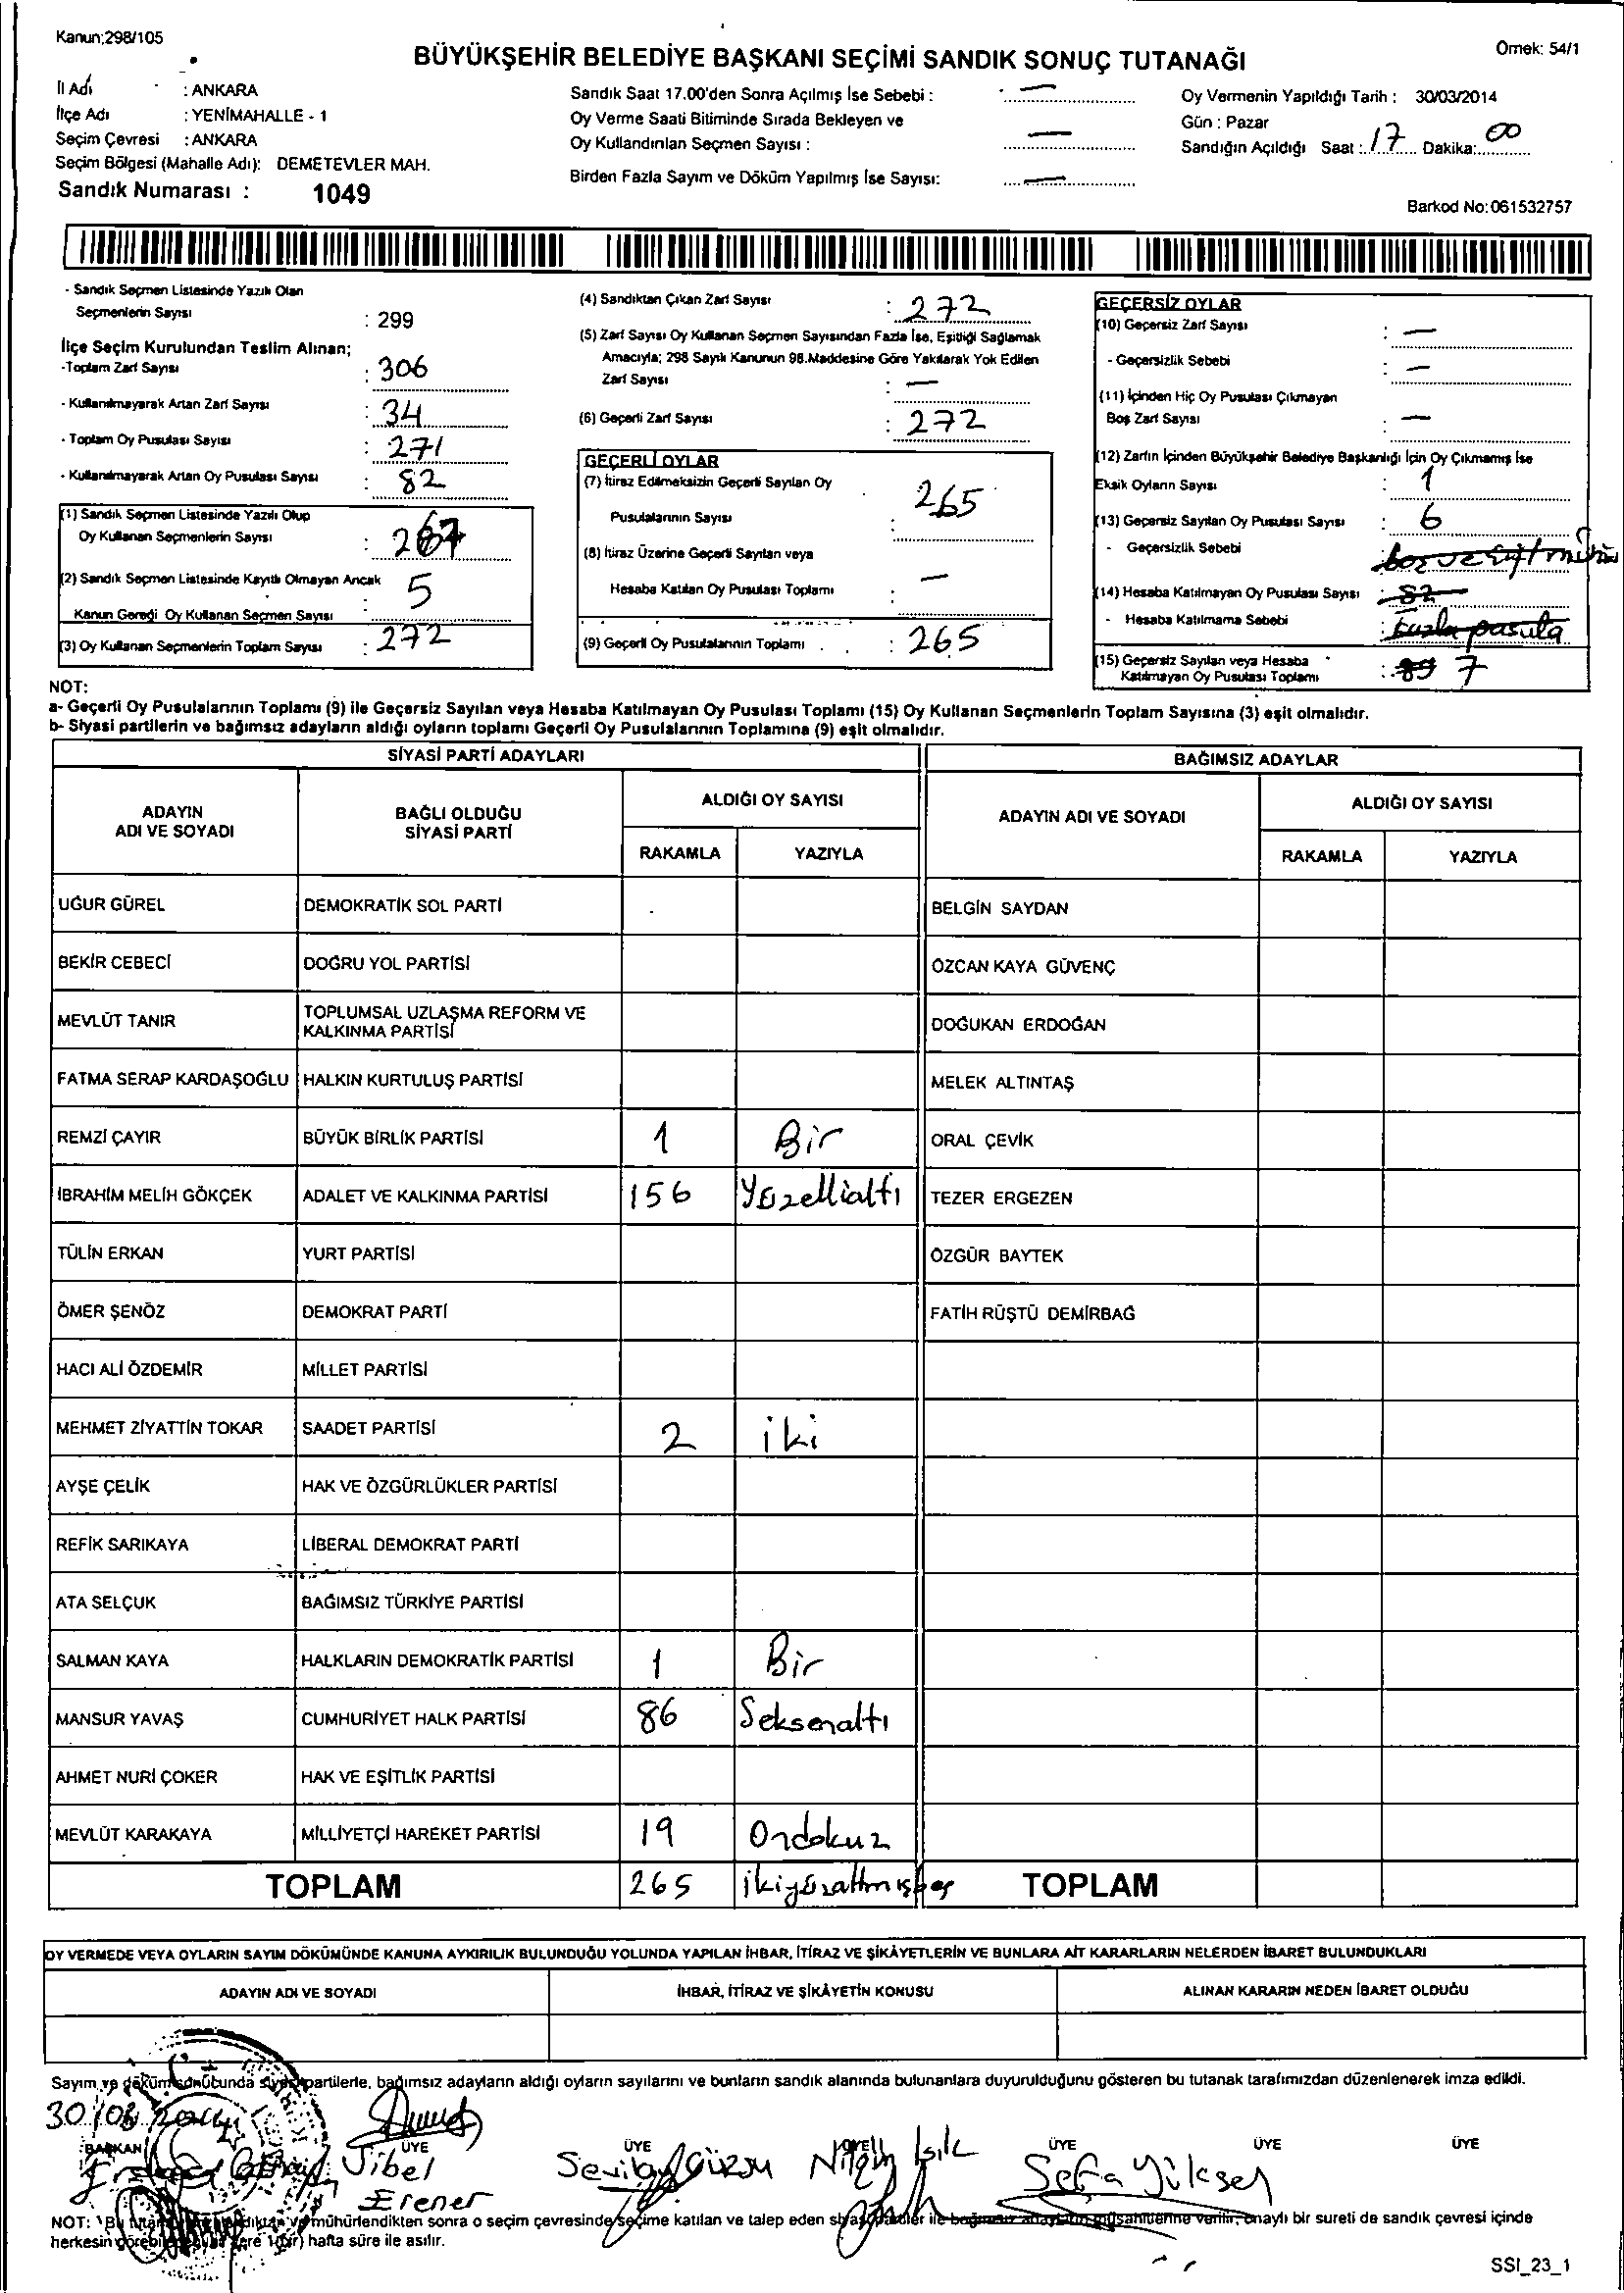 Kanun;298/105
BÜYÜKŞEHİR BELEDİYE BAŞKANI SEÇİMİ SANDIK SONUÇ TUTANAĞI
Örnek: 54/1
İl Adı : ANKARA
İlçe Adı : YENİMAHALLE - 1
Seçim Çevresi : ANKARA
Seçim Bölgesi (Mahalle Adı): DEMETEVLER MAH.
Sandık Numarası : 1049
Sandık Saat 17.00'den Sonra Açılmış İse Sebebi : —
Oy Verme Saati Bitiminde Sırada Bekleyen ve
Oy Kullandırılan Seçmen Sayısı : —
Birden Fazla Sayım ve Döküm Yapılmış İse Sayısı: —
Oy Vermenin Yapıldığı Tarih : 30/03/2014
Gün : Pazar
Sandığın Açıldığı Saat : 17 Dakika: 00
Barkod No:061532757
- Sandık Seçmen Listesinde Yazılı Olan
Seçmenlerin Sayısı : 299
İlçe Seçim Kurulundan Teslim Alınan;
-Toplam Zarf Sayısı : 306
- Kullanılmayarak Artan Zarf Sayısı : 34
- Toplam Oy Pusulası Sayısı : 271
- Kullanılmayarak Artan Oy Pusulası Sayısı : 82
(1) Sandık Seçmen Listesinde Yazılı Olup
Oy Kullanan Seçmenlerin Sayısı : 267
(2) Sandık Seçmen Listesinde Kayıtlı Olmayan Ancak
Kanun Gereği Oy Kullanan Seçmen Sayısı : 5
(3) Oy Kullanan Seçmenlerin Toplam Sayısı : 272
(4) Sandıktan Çıkan Zarf Sayısı : 272
(5) Zarf Sayısı Oy Kullanan Seçmen Sayısından Fazla İse, Eşitliği Sağlamak
Amacıyla; 298 Sayılı Kanunun 98.Maddesine Göre Yakılarak Yok Edilen
Zarf Sayısı : —
(6) Geçerli Zarf Sayısı : 272
GEÇERLİ OYLAR
(7) İtiraz Edilmeksizin Geçerli Sayılan Oy
Pusulalarının Sayısı : 265
(8) İtiraz Üzerine Geçerli Sayılan veya
Hesaba Katılan Oy Pusulası Toplamı : —
(9) Geçerli Oy Pusulalarının Toplamı : 265
GEÇERSİZ OYLAR
(10) Geçersiz Zarf Sayısı : —
- Geçersizlik Sebebi : —
(11) İçinden Hiç Oy Pusulası Çıkmayan
Boş Zarf Sayısı : —
(12) Zarfın İçinden Büyükşehir Belediye Başkanlığı İçin Oy Çıkmamış İse
Eksik Oyların Sayısı : 1
(13) Geçersiz Sayılan Oy Pusulası Sayısı : 6
- Geçersizlik Sebebi : boş ve çift mühür
(14) Hesaba Katılmayan Oy Pusulası Sayısı : 82
- Hesaba Katılmama Sebebi : fazla pusula
(15) Geçersiz Sayılan veya Hesaba
Katılmayan Oy Pusulası Toplamı : 89 7
NOT:
a- Geçerli Oy Pusulalarının Toplamı (9) ile Geçersiz Sayılan veya Hesaba Katılmayan Oy Pusulası Toplamı (15) Oy Kullanan Seçmenlerin Toplam Sayısına (3) eşit olmalıdır.
b- Siyasi partilerin ve bağımsız adayların aldığı oyların toplamı Geçerli Oy Pusulalarının Toplamına (9) eşit olmalıdır.
SİYASİ PARTİ ADAYLARI BAĞIMSIZ ADAYLAR
ADAYIN ADI VE SOYADI BAĞLI OLDUĞU SİYASİ PARTİ ALDIĞI OY SAYISI ADAYIN ADI VE SOYADI ALDIĞI OY SAYISI
RAKAMLA YAZIYLA RAKAMLA YAZIYLA
UĞUR GÜREL DEMOKRATİK SOL PARTİ BELGİN SAYDAN
BEKİR CEBECİ DOĞRU YOL PARTİSİ ÖZCAN KAYA GÜVENÇ
MEVLÜT TANIR TOPLUMSAL UZLAŞMA REFORM VE KALKINMA PARTİSİ DOĞUKAN ERDOĞAN
FATMA SERAP KARDAŞOĞLU HALKIN KURTULUŞ PARTİSİ MELEK ALTINTAŞ
REMZİ ÇAYIR BÜYÜK BİRLİK PARTİSİ 1 Bir ORAL ÇEVİK
İBRAHİM MELİH GÖKÇEK ADALET VE KALKINMA PARTİSİ 156 Yüzellialtı TEZER ERGEZEN
TÜLİN ERKAN YURT PARTİSİ ÖZGÜR BAYTEK
ÖMER ŞENÖZ DEMOKRAT PARTİ FATİH RÜŞTÜ DEMİRBAĞ
HACI ALİ ÖZDEMİR MİLLET PARTİSİ
MEHMET ZİYATTİN TOKAR SAADET PARTİSİ 2 iki
AYŞE ÇELİK HAK VE ÖZGÜRLÜKLER PARTİSİ
REFİK SARIKAYA LİBERAL DEMOKRAT PARTİ
ATA SELÇUK BAĞIMSIZ TÜRKİYE PARTİSİ
SALMAN KAYA HALKLARIN DEMOKRATİK PARTİSİ 1 Bir
MANSUR YAVAŞ CUMHURİYET HALK PARTİSİ 86 Seksenaltı
AHMET NURİ ÇOKER HAK VE EŞİTLİK PARTİSİ
MEVLÜT KARAKAYA MİLLİYETÇİ HAREKET PARTİSİ 19 Ondokuz
TOPLAM 265 ikiyüzaltmışbeş TOPLAM
OY VERMEDE VEYA OYLARIN SAYIM DÖKÜMÜNDE KANUNA AYKIRILIK BULUNDUĞU YOLUNDA YAPILAN İHBAR, İTİRAZ VE ŞİKÂYETLERİN VE BUNLARA AİT KARARLARIN NELERDEN İBARET BULUNDUKLARI
ADAYIN ADI VE SOYADI İHBAR, İTİRAZ VE ŞİKÂYETİN KONUSU ALINAN KARARIN NEDEN İBARET OLDUĞU
Sayım ve döküm sonucunda siyasi partilerle, bağımsız adayların aldığı oyların sayılarını ve bunların sandık alanında bulunanlara duyurulduğunu gösteren bu tutanak tarafımızdan düzenlenerek imza edildi.
BAŞKAN ÜYE ÜYE ÜYE ÜYE ÜYE
Sibel Erener Nilgün Işık Sefa Yüksel
NOT: Bu mühürlendikten sonra o seçim çevresinde seçime katılan ve talep eden siyasi partiler ile bağımsız adayların müşahitlerine verilir, onaylı bir sureti de sandık çevresi içinde
herkesin görebileceği yere 1(bir) hafta süre ile asılır.
SSI_23_1